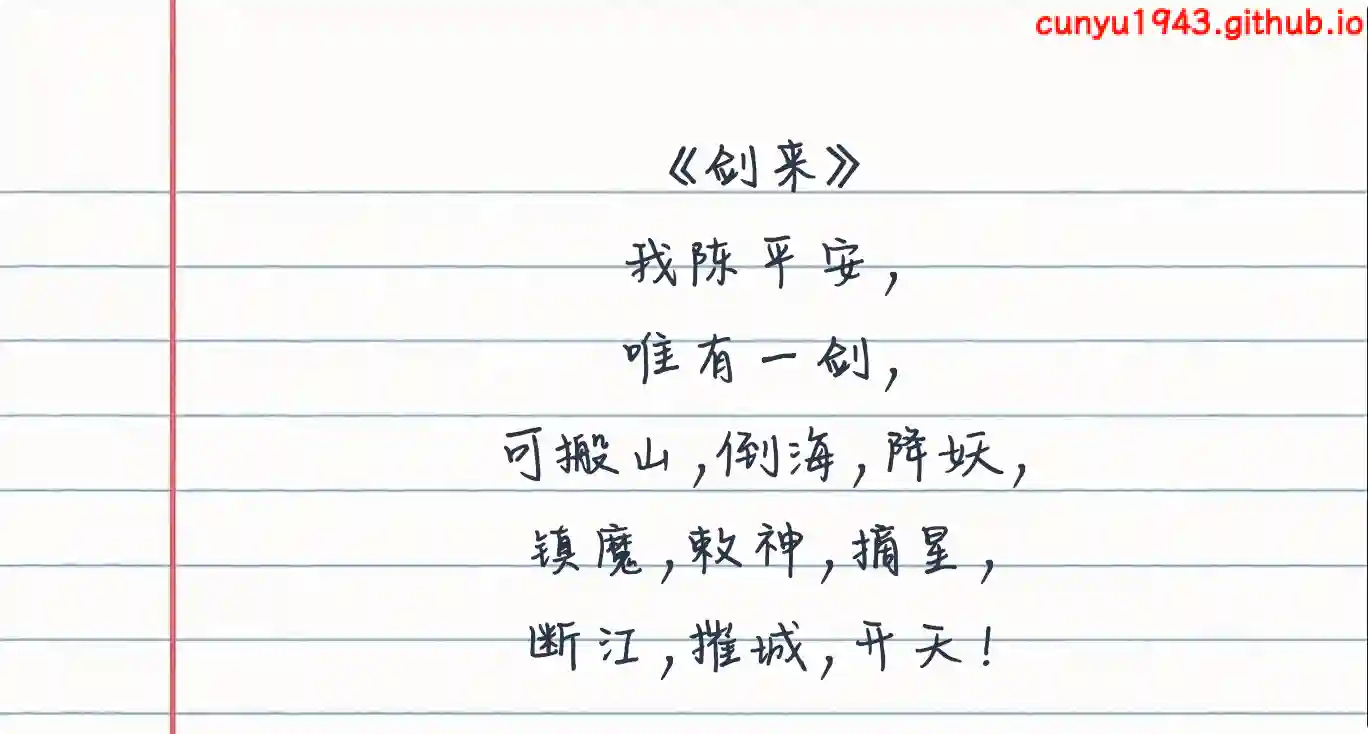 cunyu1943.github.io
《剑来》
我陈平安，
唯有一剑，
可搬山，倒海，降妖，
镇魔，敕神，摘星，
断江，摧城，开天！